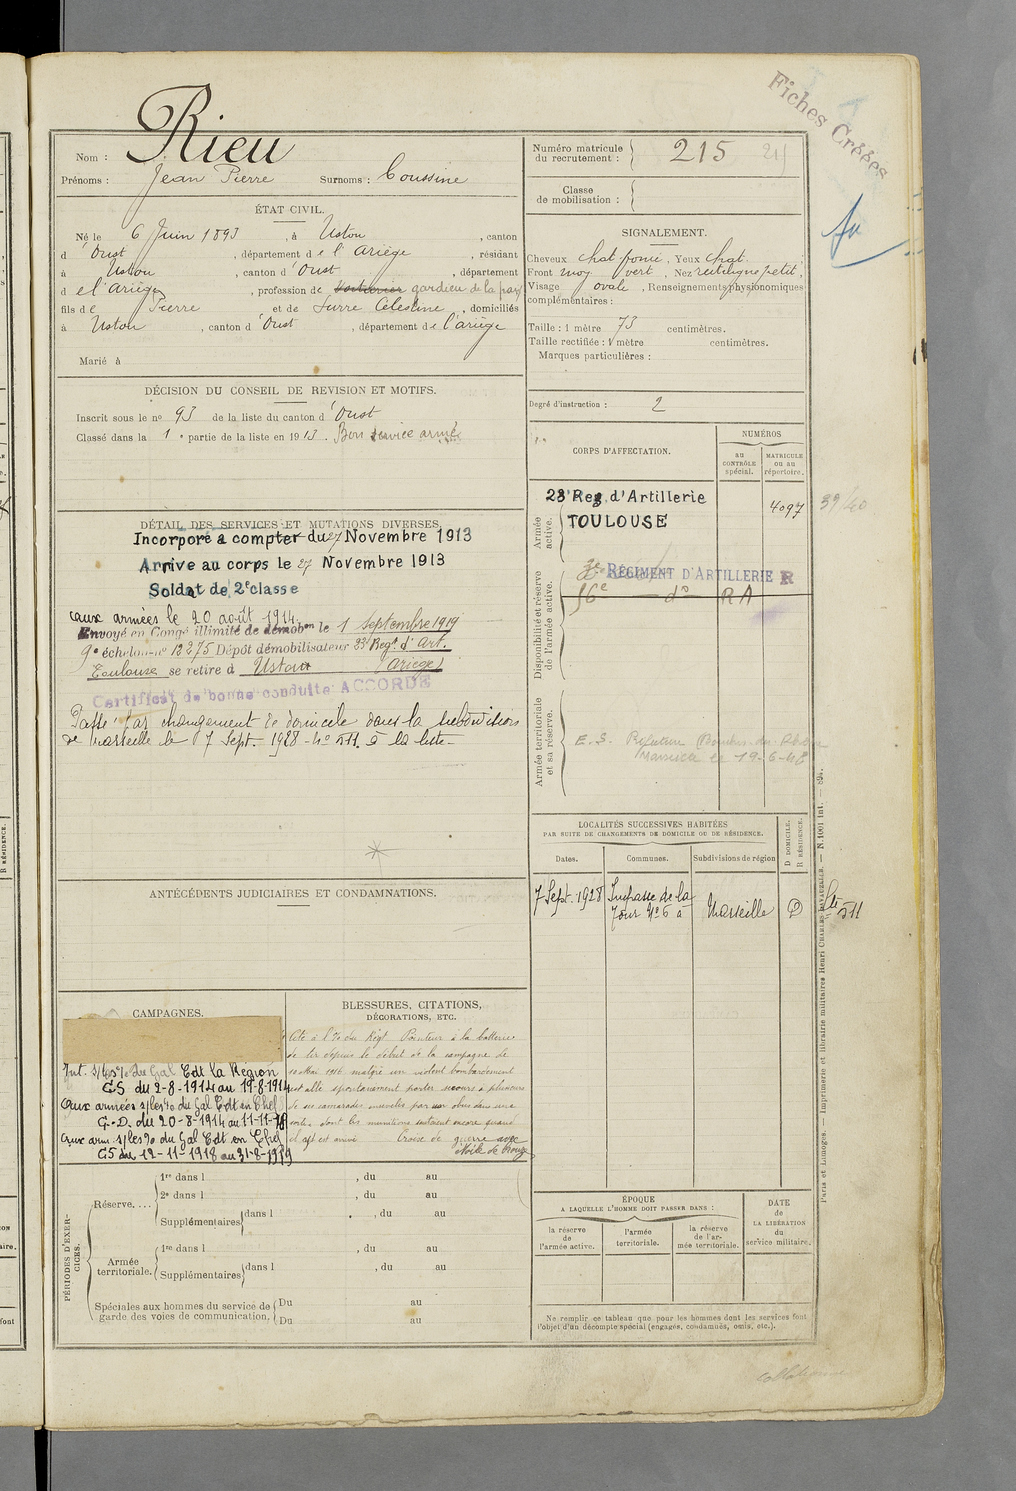 Fiches Créées
Rieu
Nom :
Prénoms : Jean Pierre Surnoms : Coussine
Numéro matricule
du recrutement : 215
Classe
de mobilisation :
ÉTAT CIVIL.
Né le 6 Juin 1893, à Ustou, canton
d'Oust, département de l'Ariège, résidant
à Ustou, canton d'Oust, département
de l'Ariège, profession de gardien de la paix
fils de Pierre et de Surre Célestine, domiciliés
à Ustou, canton d'Oust, département de l'Ariège
Marié à
SIGNALEMENT.
Cheveux chat foncé, Yeux chat.
Front moy vert, Nez rectiligne petit,
Visage ovale, Renseignements physionomiques
complémentaires :
Taille : 1 mètre 73 centimètres.
Taille rectifiée : 1 mètre centimètres.
Marques particulières :
Degré d'instruction : 2
DÉCISION DU CONSEIL DE REVISION ET MOTIFS.
Inscrit sous le no 93 de la liste du canton d'Oust
Classé dans la 1e partie de la liste en 1913. Bon service armé
CORPS D'AFFECTATION.
NUMÉROS
au
CONTRÔLE
spécial.
MATRICULE
ou au
répertoire.
Armée
active.
23 Reg. d'Artillerie
TOULOUSE
4097
39/40
Disponibilité et réserve
de l'armée active.
3e RÉGIMENT D'ARTILLERIE R
16e do RA
Armée territoriale
et sa réserve.
E. S. Préfecture Bouches-du-Rhône
Marseille le 19-6-40
DÉTAIL DES SERVICES ET MUTATIONS DIVERSES.
Incorporé à compter du 27 Novembre 1913
Arrivé au corps le 27 Novembre 1913
Soldat de 2e classe
aux armées le 20 août 1914.
Envoyé en Congé illimité de démobon le 1 Septembre 1919
9e échelon no 12275 Dépôt démobilisateur 23 Regt d'Art.
Toulouse se retire à Ustou (Ariège)
Certificat de bonne conduite ACCORDÉ
Passé par changement de domicile dans la subdivision
de Marseille le 7 Sept. 1928 - no 511 à la liste -
LOCALITÉS SUCCESSIVES HABITÉES
PAR SUITE DE CHANGEMENTS DE DOMICILE OU DE RÉSIDENCE.
Dates.
Communes.
Subdivisions de région
D DOMICILE.
R RÉSIDENCE.
7 Sept. 1928 Impasse de la
Tour No 6 à Marseille D
511
ANTÉCÉDENTS JUDICIAIRES ET CONDAMNATIONS.
CAMPAGNES.
Int. s/les o/ du Gal Cdt la Région
CS du 2-8-1914 au 19-8-1914
Aux armées s/les o/ du Gal Cdt en Chef
C.D. du 20-8-1914 au 11-11-18
Aux arm. s/les o/ du Gal Cdt en Chef
CS du 12-11-1918 au 31-8-1919
BLESSURES, CITATIONS,
DÉCORATIONS, ETC.
Cité à l'o/ du Régt Pointeur à la batterie
de tir depuis le début de la campagne
10 Mai 1916 malgré un violent bombardement
est allé spontanément porter secours à plusieurs
de ses camarades par un obus dans une
dont les munitions sautaient encore quand
il est arrivé Croix de guerre avec
étoile de bronze
PÉRIODES D'EXERCICES.
Réserve. ...
1re dans l , du au
2e dans l , du au
Supplémentaires dans l , du au
Armée
territoriale.
1re dans l , du au
Supplémentaires dans l , du au
Spéciales aux hommes du service de
garde des voies de communication,
Du au
Du au
ÉPOQUE
A LAQUELLE L'HOMME DOIT PASSER DANS :
la réserve
de
l'armée active.
l'armée
territoriale.
la réserve
de l'ar-
mée territoriale.
DATE
de
LA LIBÉRATION
du
service militaire.
Ne remplir ce tableau que pour les hommes dont les services font
l'objet d'un décompte spécial (engagés, condamnés, omis, etc.).
Paris et Limoges. — Imprimerie et librairie militaires Henri CHARLES-LAVAUZELLE. — N. 1001 int. — 894.